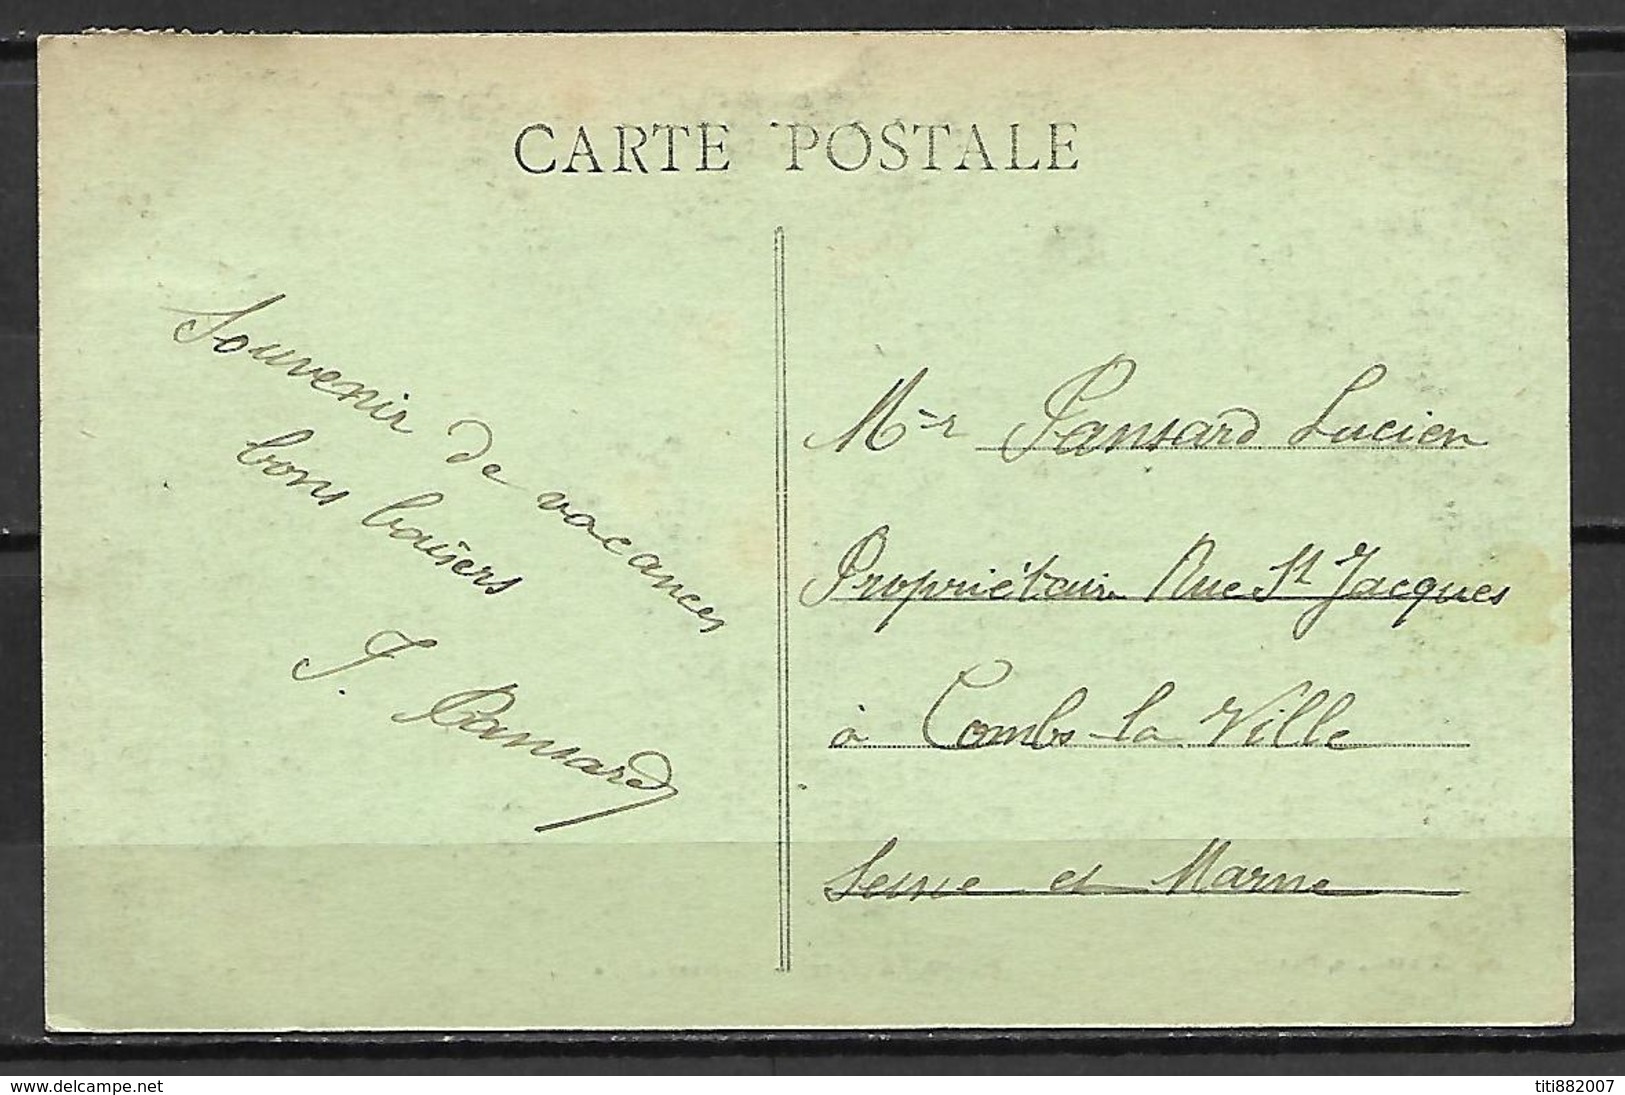 CARTE POSTALE
Souvenir de vacances
bons baisers
J. Pansard
M-r Pansard Lucien
Propriétaire Rue St Jacques
à Combs-la-Ville
Seine et Marne
www.delcampe.net
titi882007